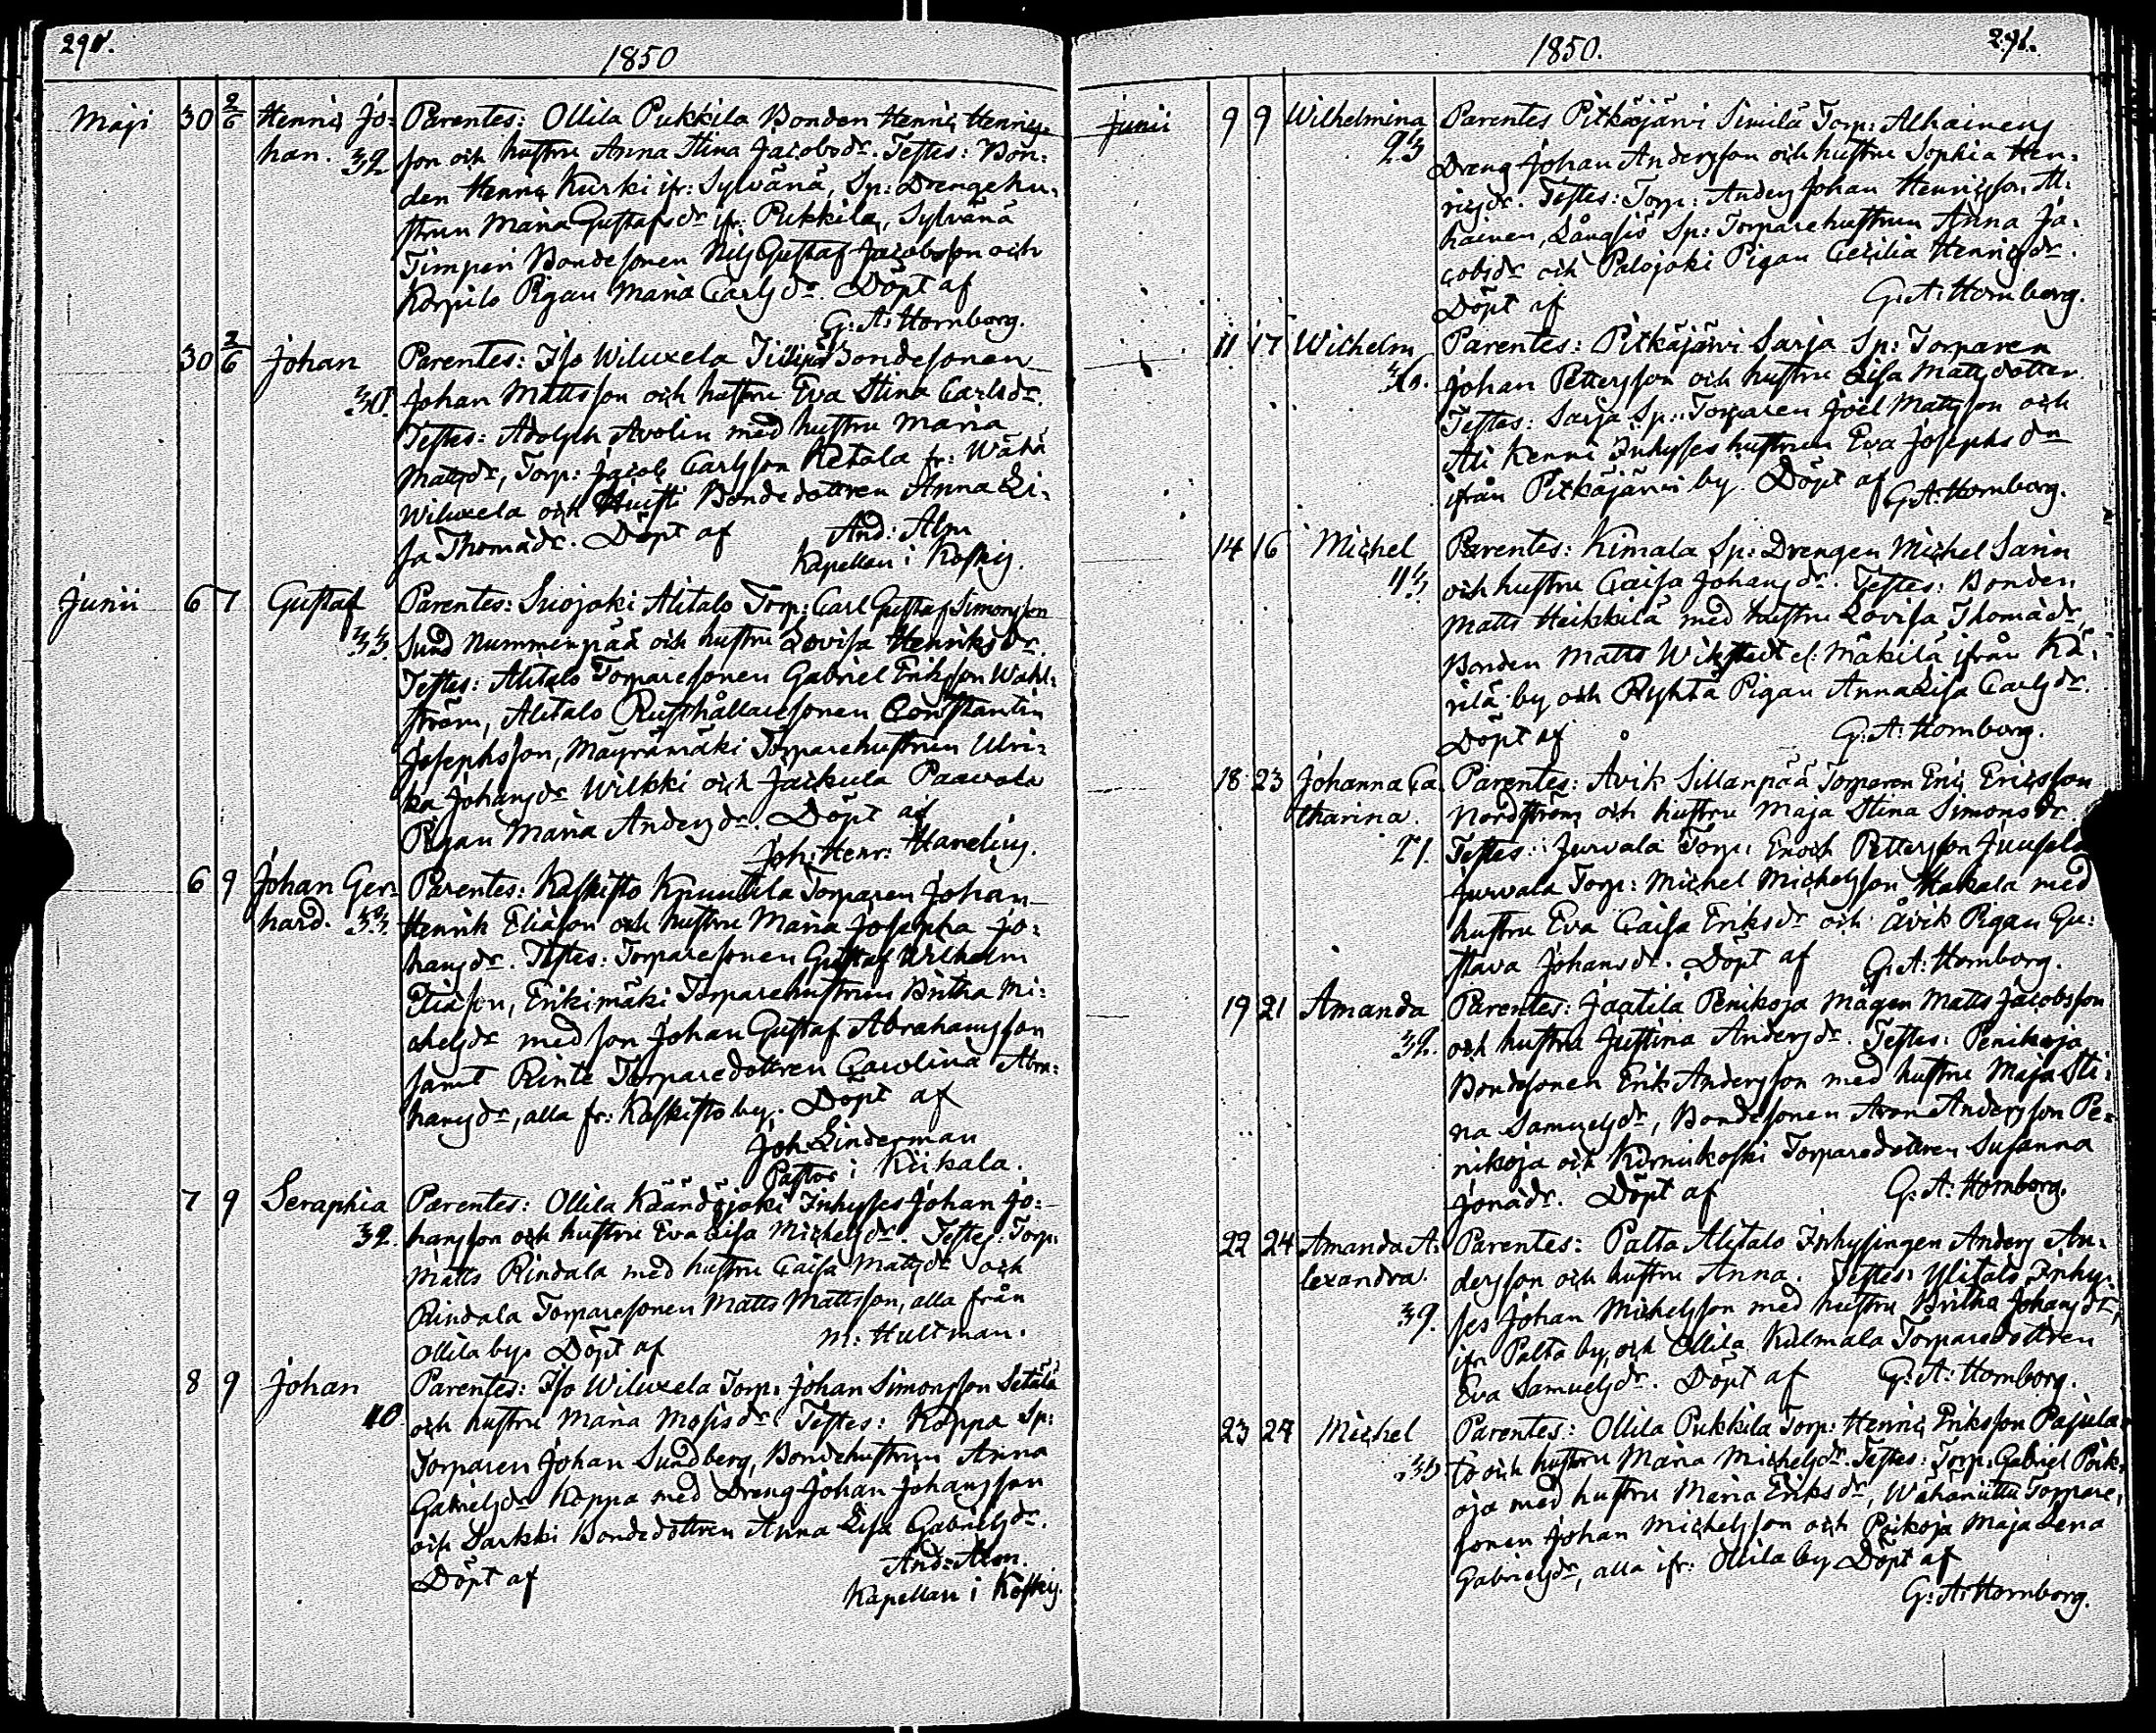 290.
1850
Maji 30 2/6 Henric Jo- Parentes: Ollila Pukkila Bonden Henric Henrics-
han. 32 son och hustru Anna Stina Jacobsdr. Testes: Bon-
den Henric Kurki ifr: Sylvänä, Sp: Drengehu-
strun Maria Gustafsdr ifr: Pukkila, Sylvänä
Timperi Bondesonen Nils Gustaf Jacobsson och
Korpilo Pigan Maria Carlsdr. Döpt af
G: A: Hornborg.
30 2/6 Johan Parentes: Iso Wiluxela Bondesonen
Johan Mattsson och hustru Eva Stina Carlsdr.
Testes: Adolph Avolin med hustru Maria
Mattsdr, Torp: Jacob Carlsson Ketala fr: Wähä
Wiluxela och Huisti Bondedottren Anna Li-
sa Thomädr. Döpt af And: Alm
Kapellan i Koskis.
Junii 6 7 Gustaf Parentes: Suojoki Alitalo Torp: Carl Gustaf Simonsson
33. Sund Nummenpää och hustru Lovisa Henriksdr.
Testes: Alitalo Torparesonen Gabriel Eriksson Wahl-
ström, Alitalo Rusthållaresonen Constantin
Josephsson, Mäyrämäki Torparehustrun Ulri-
ka Johansdr Wilkki och Jackula Paavola
Pigan Maria Andersdr. Döpt af
Joh: Henr: Hanelius.
6 9 Johan Ger- Parentes: Kaskisto Knuutila Torparen Johan
hard. 33. Henrik Eliasson och hustru Maria Josepha Jo-
hansdr. Testes: Torparesonen Gustaf Wilhelm
Eliasson, Erikimäki Torparehustrun Britha Mi-
chelsdr med son Johan Gustaf Abrahamsson
samt Rinte Torparedottren Carolina Abra-
hamsdr, alla fr: Kaskisto by. Döpt af
Joh: Linderman
Pastor i Kiikala.
7 9 Seraphia Parentes: Ollila Käändöjoki Inhyses Johan Jo-
32. hansson och hustru Eva Lisa Michelsdr. Testes: Torp:
Matts Rindala med hustru Caisa Mattsdr och
Rindala Torparesonen Matts Mattsson, alla från
Ollila by. Döpt af M: Hultman.
8 9 Johan Parentes: Iso Wiluxela Torp: Johan Simonsson Setälä
10 och hustru Maria Mosisdr. Testes: Koppa Sp:
Torparen Johan Sundberg, Bondehustrun Anna
Gabrielsdr Koppa med Dreng Johan Johansson
och Sarkki Bondedottren Anna Lisa Gabrielsdr.
Döpt af And: Alm.
Kapellan i Koskis.
291.
1850.
Junii 9 9 Wilhelmina Parentes Pitkäjärvi Simila Torp: Alhainens
23 Dreng Johan Andersson och hustru Sophia Hen-
ricsdr. Testes: Torp: Anders Johan Henricsson Al-
hainen, Långsjö Sp: Torparehustrun Anna Ja-
cobsdr och Palojoki Pigan Cecilia Henricsdr.
Döpt af G: A: Hornborg.
11 17 Wilhelm Parentes: Pitkäjärvi Sarja Sp: Torparen
36. Johan Pettersson och hustru Lisa Mattsdotter.
Testes: Sarja Sp: Torparen Joel Mattsson och
Ali Kenni Inhyseshustrun Eva Josephsdr
ifrån Pitkäjärvi by. Döpt af G: A: Hornborg.
14 16 Michel Parentes: Kimala Sp: Drengen Michel Sarin
43 och hustru Caisa Johansdr. Testes: Bonden
Matts Heikkilä med hustru Lovisa Thomädr,
Bonden Matts Wikstedt el: Mäkilä ifrån Kä-
rilä by och Ryhtä Pigan Anna Lisa Carlsdr.
Döpt af G: A: Hornborg.
18 23 Johanna Ca- Parentes: Åvik Sillanpää Torparen Eric Ericsson
tharina. Nordström och hustru Maja Stina Simonsdr.
21. Testes: Jurvala Torp: Enoch Pettersson Juusela
Jurvala Torp: Michel Michelsson Hakala med
hustru Eva Caisa Eriksdr och Åvik Pigan Gu-
stava Johansdr. Döpt af G: A: Hornborg.
19 21 Amanda Parentes: Jaatila Penikoja Mågen Matts Jacobsson
32. och hustru Justina Andersdr. Testes: Penikoja
Bondesonen Erik Andersson med hustru Maja Sti-
na Samuelsdr, Bondesonen Aron Andersson Pe-
nikoja och Kurnukoski Torparedottren Susanna
Jonädr. Döpt af G: A: Hornborg.
22 24 Amanda A- Parentes: Palta Alitalo Inhysingen Anders An-
lexandra. dersson och hustru Anna. Testes: Ylitalo Inhy-
39. ses Johan Michelsson med hustru Britha Johansdr,
ifr Palta by, och Ollila Kulmala Torparedottren
Eva Samuelsdr. Döpt af G: A: Hornborg.
23 24 Michel Parentes: Ollila Pukkila Torp: Henric Eriksson Pajula-
36 to och hustru Maria Michelsdr. Testes: Torp: Gabriel Poik-
oja med hustru Maria Eriksdr, Wähäniittu Torpare-
sonen Johan Michelsson och Poikoja Maja Lena
Gabrielsdr, alla ifr: Ollila by Döpt af
G: A: Hornborg.